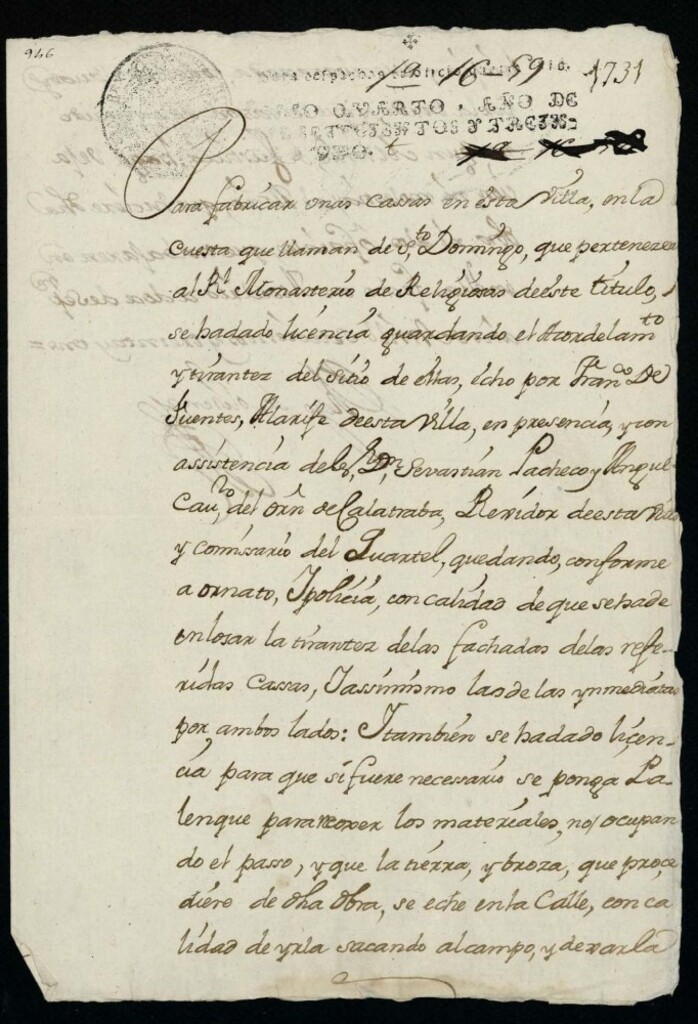 946
1z 16 59 1731
para despachos de oficio
SELLO QVARTO, AÑO DE
SETECIENTOS Y TREIN-
VNO.
Para fabricar unas Cassas en esta Villa, en la
Cuesta que llaman de Sto Domingo, que pertenezen
al Rl Monasterio de Religiosas de este titulo,
se ha dado licencia guardando el Acordelamto
y tirantez del sitio de ellas, echo por Franco De
Fuentes, Alarife de esta Villa, en presencia, y con
assistencia del Sr Dn Sevastián Pacheco y Angul-
Cauo del orn de Calatraba, Rexidor de esta Villa
y Comissario del Quartel, quedando, conforme
a ornato, Ypolicia, con calidad de que se ha de
enlosar la tirantez de las fachadas de las refe-
ridas Cassas, Yassimismo las de las ynmediatas
por ambos lados: Ytambien se ha dado licen-
cia para que si fuere necessario se ponga Pa-
lenque para recoxer los materiales, no ocupan
do el passo, y que la tierra, y broza, que proce
diere de dha obra, se eche en la Calle, con ca
lidad de yrla sacando al campo, y dexarla